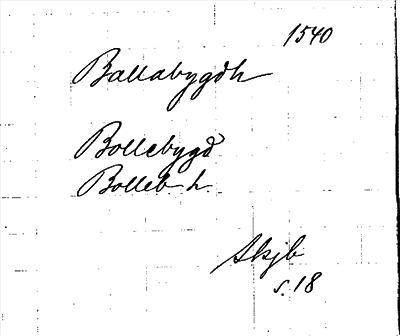 1540
Ballabygdh
Bollebygd
Bolleb h.
Skjb
s. 18